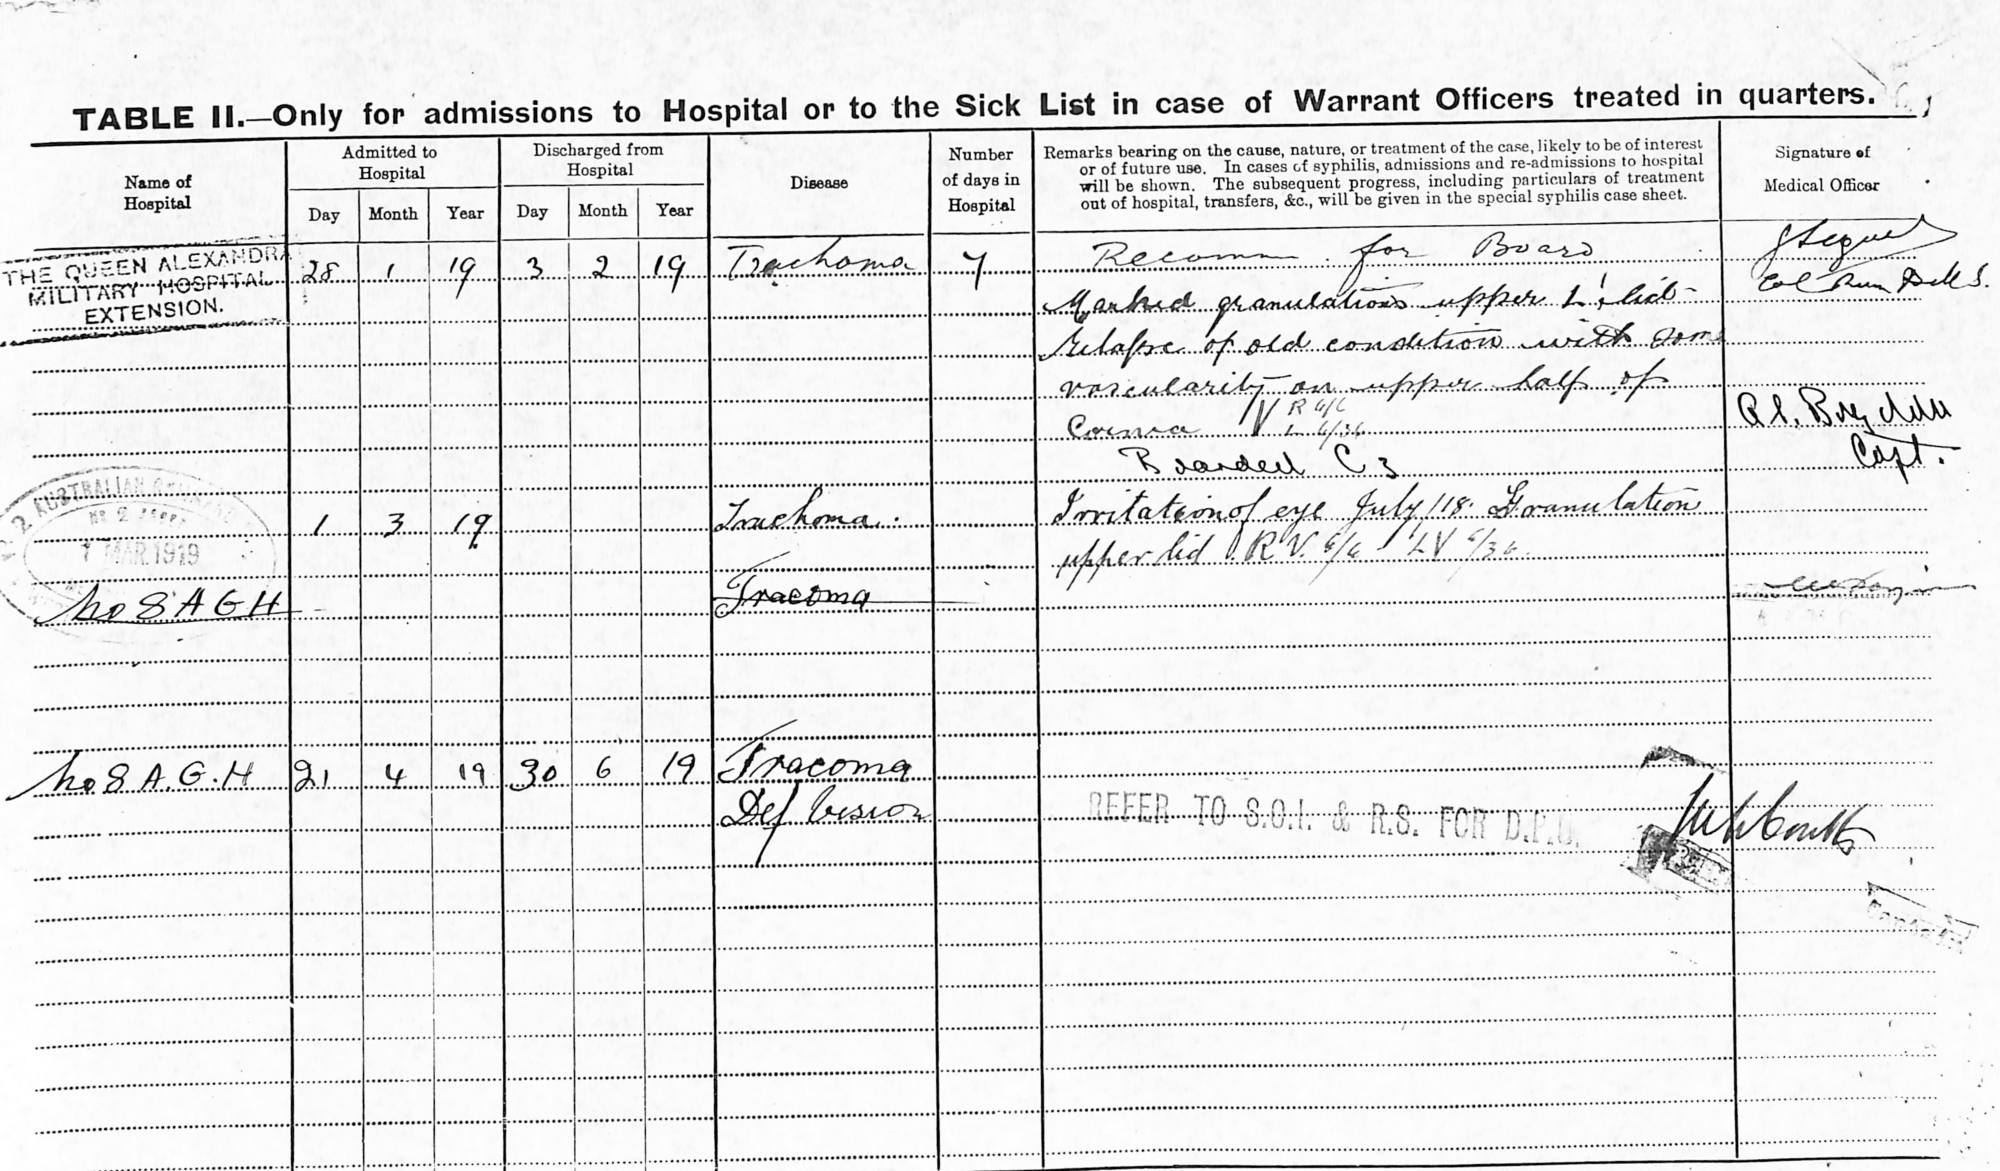 TABLE II.—Only for admissions to Hospital or to the Sick List in case of Warrant Officers treated in quarters.
Name of Hospital
Admitted to Hospital
Day Month Year
Discharged from Hospital
Day Month Year
Disease
Number of days in Hospital
Remarks bearing on the cause, nature, or treatment of the case, likely to be of interest
or of future use. In cases of syphilis, admissions and re-admissions to hospital
will be shown. The subsequent progress, including particulars of treatment
out of hospital, transfers, &c., will be given in the special syphilis case sheet.
Signature of
Medical Officer
THE QUEEN ALEXANDRA
MILITARY HOSPITAL
EXTENSION.
28 1 19 3 2 19 Trachoma 7 Recomm for Board
Col
Marked granulations upper L lid
relapse of old condition with some
vascularity on upper half of
Cornea V R 6/6
L 6/36
Boarded C 3
Capt.
AUSTRALIAN
No 2
1 MAR 1919
1 3 19 Trachoma. Irritation of eye July /18. Granulation
upper lid R V. 6/6 L V 6/36
No 8 A G H Tracoma
No 8 A. G. H 21 4 19 30 6 19 Tracoma
Def Vision
REFER TO S.O.I. & R.S. FOR D.P.U.